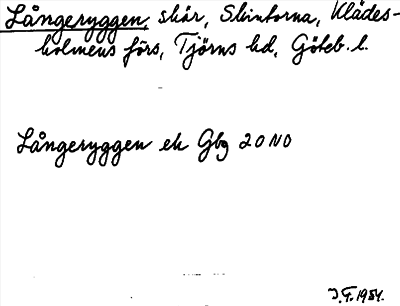 Långeryggen, skär, Skintorna, Klädes-
holmens förs, Tjörns hd, Göteb. l.
Långeryggen ek Gbg 20 NO
J.F. 1984.